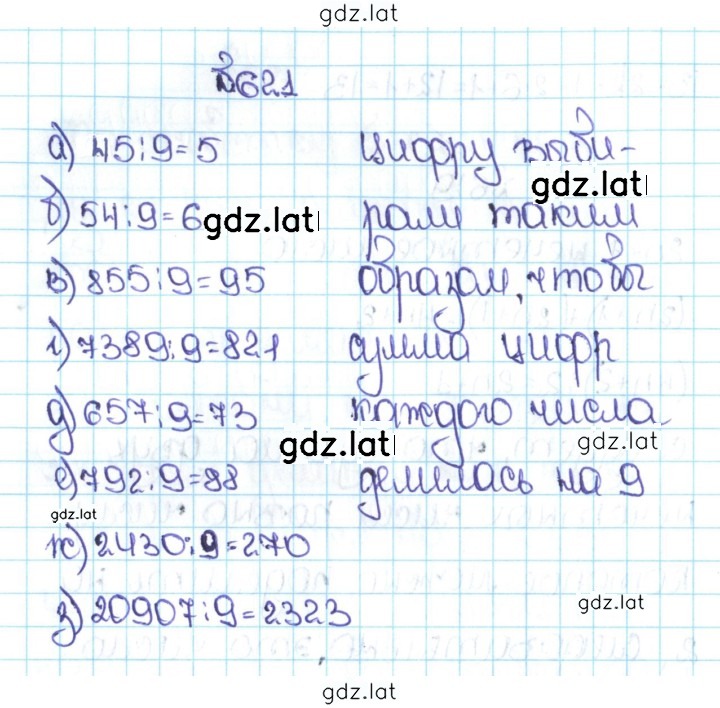 gdz.lat
№621
а) 45:9=5
б) 54:9=6
в) 855:9=95
г) 7389:9=821
д) 657:9=73
е) 792:9=88
ж) 2430:9=270
з) 20907:9=2323
цифру выби-
рали таким
образом, чтобы
сумма цифр
каждого числа
делилась на 9
gdz.lat
gdz.lat
gdz.lat
gdz.lat
gdz.lat
gdz.lat
gdz.lat